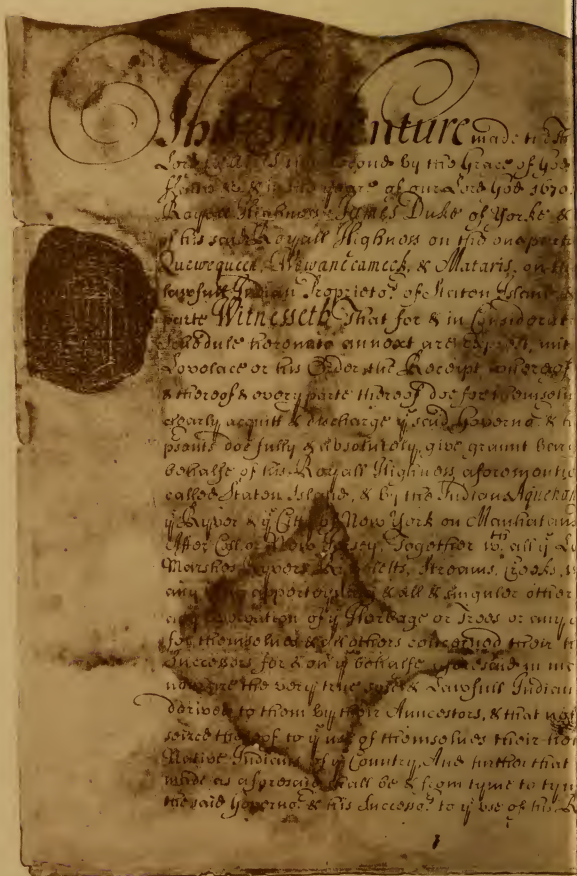 This Indenture made the
Lord by the Grace of God
yeare of our Lord God 1670
Royall Highness James Duke of Yorke &
of his said Royall Highness on the one parte
Quewequeck, Wewanecameck, & Mataris, on the
lawfull Indian Proprieto.rs of Staton Island
parte Witnesseth, That for & in Considerat
Schedule hereunto annext are exprest, unto
Lovelace or his Order, the Receipt whereof
& thereof & every parte thereof doe for themselv
clearly acquitt & discharge ye said Governo.r &
psents doe fully & absolutely, give, graunt Barg
behalfe of his Royall Highness aforementio
called Staton Island, & by the Indians Aquehon
ye Ryver & ye City of New York on Manhatans
After Coll. or New Jersey, Together wth all ye
Marshes, Ryvers, Streams, Creeks,
any & all & singuler other
of ye Herbage or Trees or any
for themselves & all others concerned their
Successors for & on ye behalfe aforesaid in
now are the very true sole & Lawfull Indian
derived to them by their Auncestors, & that
seized thereof to ye use of themselves their
Native Indians of ye Country, And further that
made, as aforesaid shall be & from tyme to tym
the said Governo.r & his Successo.rs to ye use of his R